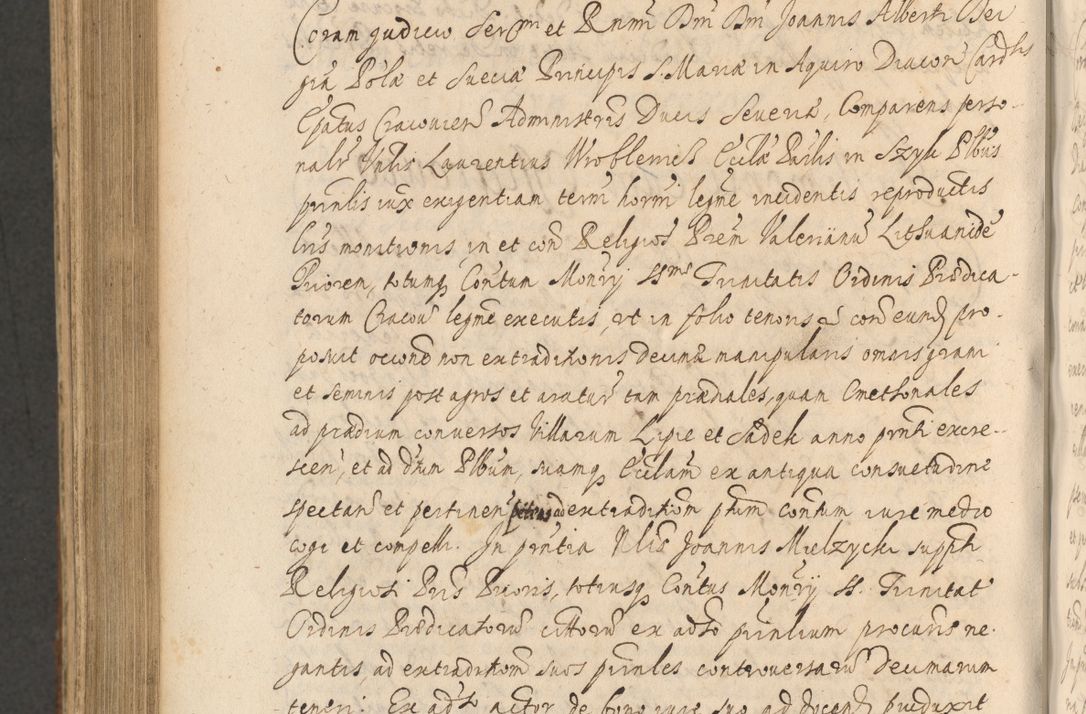 Coram judicio Serm̃ et Rnm̃ Dm̃ Dm̃ Joannis Alberti Dei
gia Polæ et Sueciæ Principis S. Mariæ in Aquiro Diacon Cardlis
Epatus Cracovien Administris Ducis Severiæ, Comparens perso-
nalr Vnlis Laurentius Wroblewich Eccla Pailis in Szyk Plbus
prinlis iux exigentiam term horm legme incidentis reproductis
lris monitionis in et con Religios Prem Valerianu Lithuanide
Priorem, totumq Contum Monrij SSmæ Trinitatis Ordinis Prædica-
torum Cracov legme executis, vt in folio tenoris coram eund pro-
posuit occone non extraditionis decimæ manipularis omnis grani
et seminis post agros et aratur tam prædiales, quam Cmethonales
ad prædium conversos Villarum Lipie et Sadek anno prnti excre-
scen, et ad dtum Plbum, suamq Ecclam ex antiqua consuetudine
spectan et pertinen petens ad extraditiom ptum contum iure medio
cogi et compelli. In prntia Nlis Joannis Mielzycki suppti
Religiosi Pris Prioris, totiusq Contus Monrij SS. Trinitat
Ordinis Prædicatorum cittoru ex adso prinlium procuris ne-
gantis ad extraditiom suos prinles controversaru decimarum
teneri. Ex adso actor de bono iure suo ad docend produxit